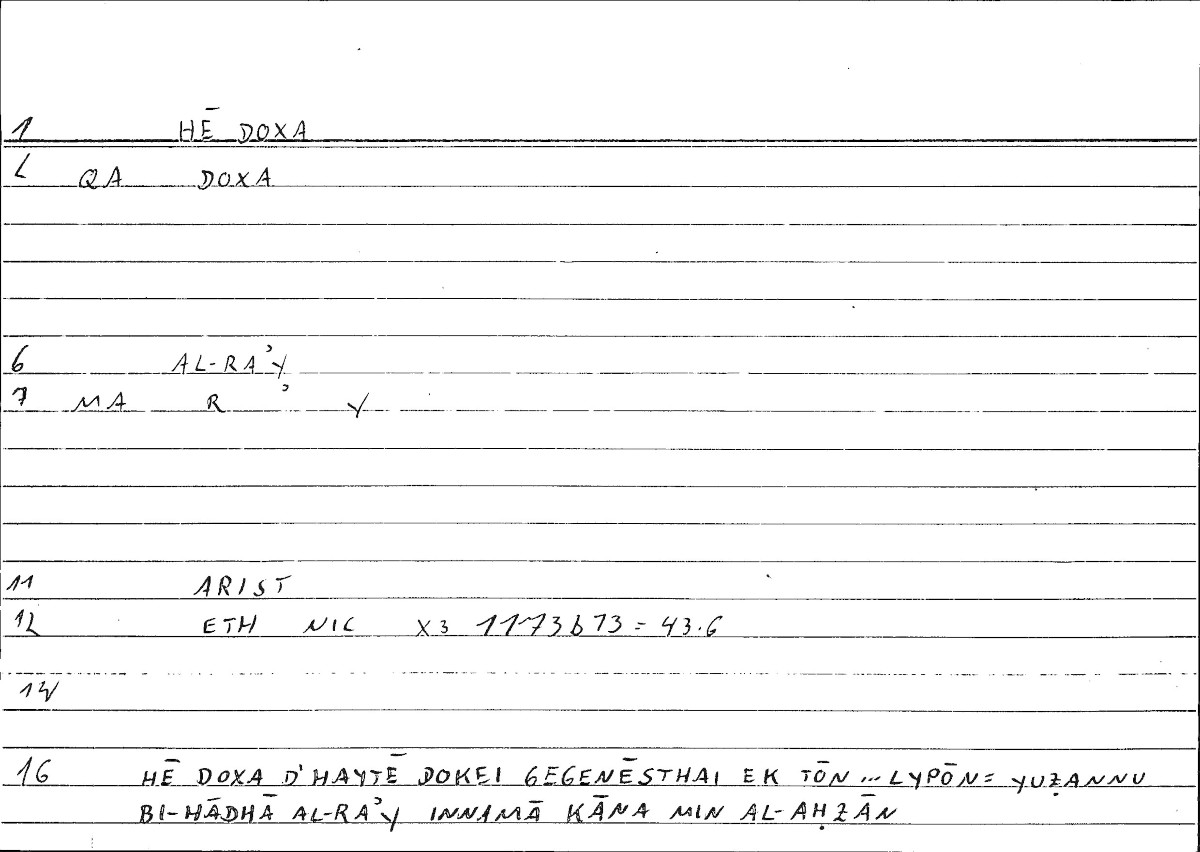 1 HĒ DOXA
2 QA DOXA
6 AL-RAʾY
7 MA R ʾ Y
11 ARIST
12 ETH NIC X3 1173b13 = 43.6
HĒ DOXA D'HAYTĒ DOKEI GEGENĒSTHAI EK TŌN ... LYPŌN = YUẒANNU
BI-HĀDHĀ AL-RAʾY INNAMĀ KĀNA MIN AL-AḤZĀN
16